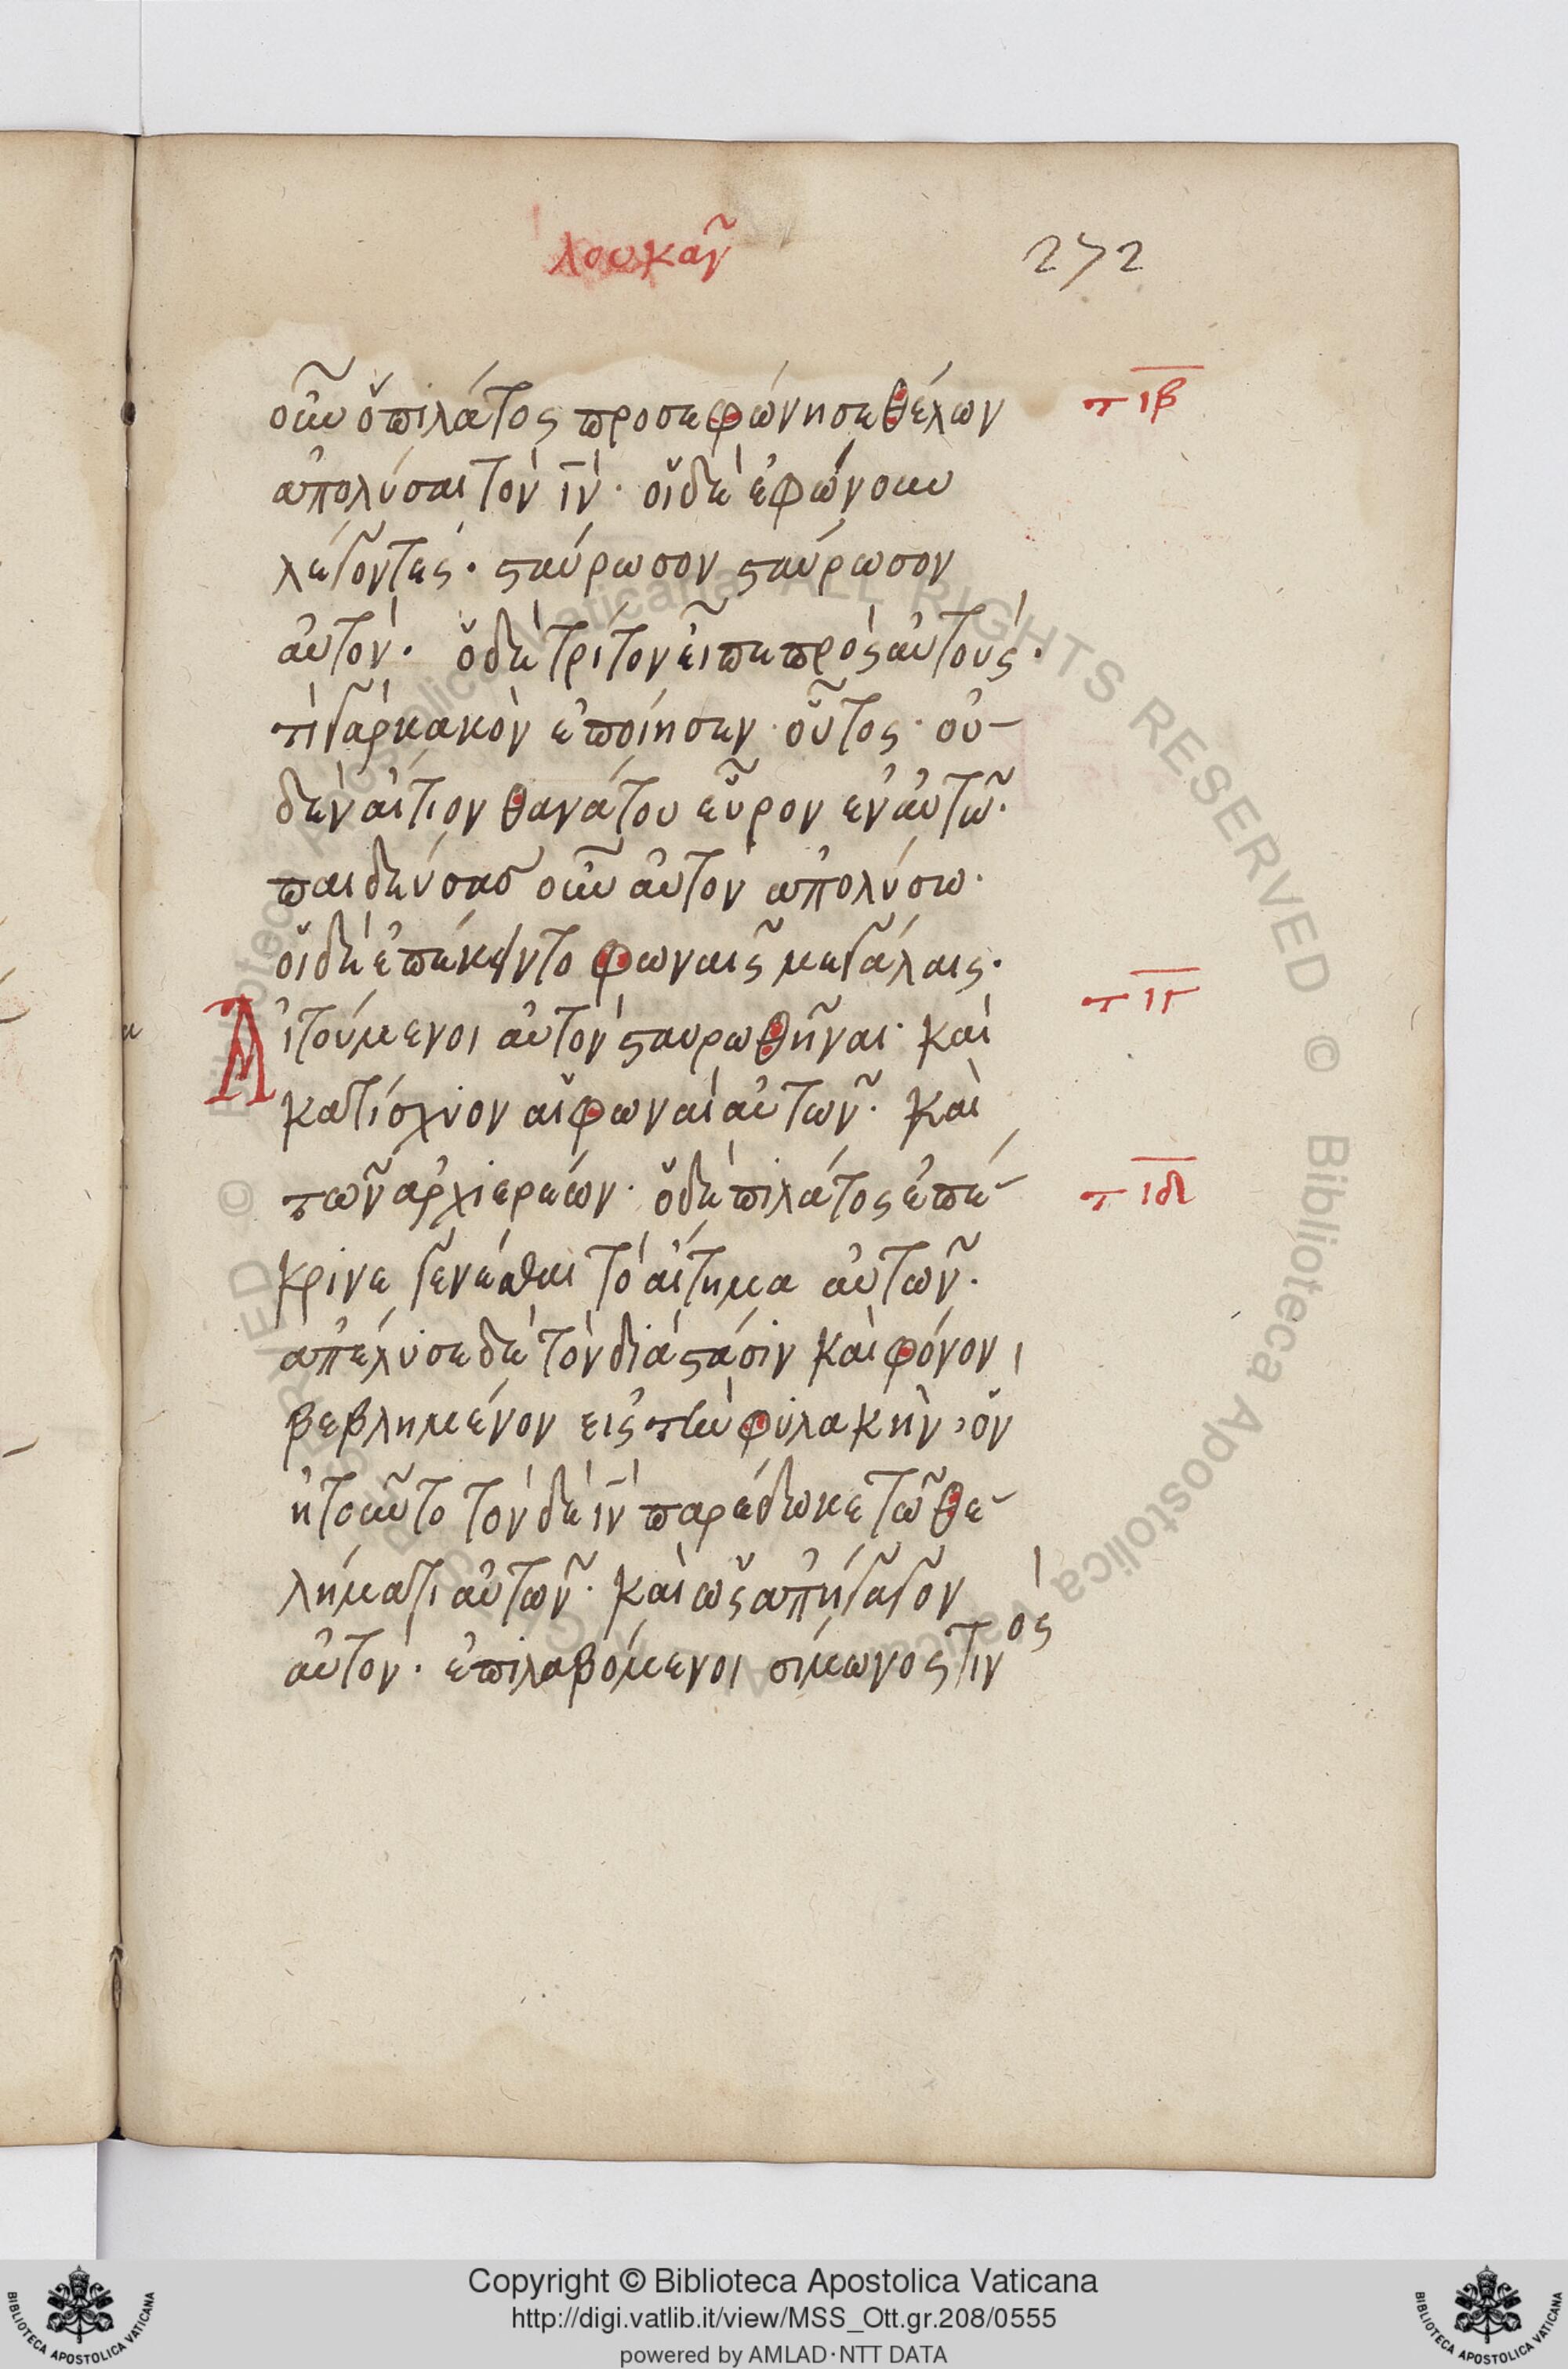 λουκᾶν
272
οῦν ὁ πιλάτος προσεφώνησε θέλων
τιβ
ἀπολύσαι τὸν ιν· οἱ δὲ ἐφώνουν
λέγοντες· σταύρωσον σταύρωσον
αὐτόν· ὁ δὲ τρίτον εἶπε πρὸς αὐτούς·
τί γὰρ κακὸν ἐποίησεν οὗτος· οὐ-
δὲν αἴτιον θανάτου εὗρον ἐν αὐτῶ·
παιδεύσας οὖν αὐτὸν ἀπολύσω·
οἱ δὲ ἐπέκειντο φωναῖς μεγάλαις·
τιγ
Αἰτούμενοι αὐτὸν σταυρωθῆναι· καὶ
κατίσχυον αἱ φωναὶ αὐτῶν· καὶ
τῶν ἀρχιερέων· ὁ δὲ πιλάτος ἐπέ-
τιδ
κρινε γενέσθαι τὸ αἴτημα αὐτῶν·
ἀπέλυσε δὲ τὸν διὰ στάσιν καὶ φόνον
βεβλημένον εἰς τὴν φυλακὴν, ὃν
ἠτοῦντο τὸν δὲ ιν παρέδωκε τῶ θε-
λήματι αὐτῶν· καὶ ὡς ἀπήγαγον
αὐτόν· ἐπιλαβόμενοι σίμωνος τινὸς
Copyright © Biblioteca Apostolica Vaticana
http://digi.vatlib.it/view/MSS_Ott.gr.208/0555
powered by AMLAD·NTT DATA